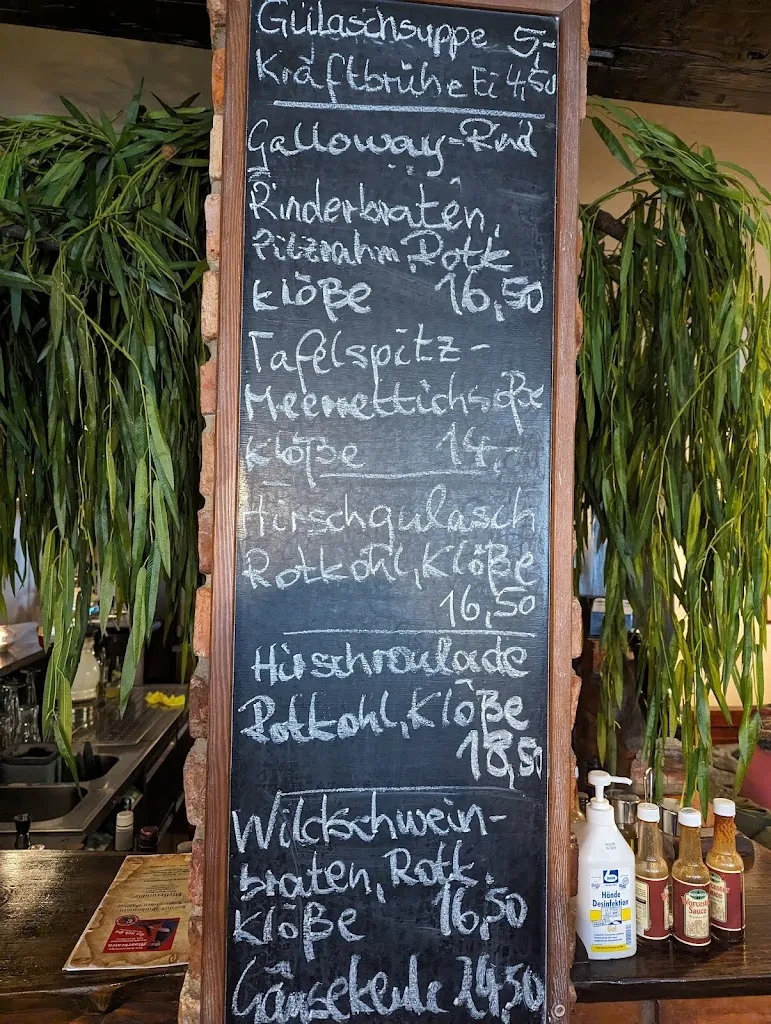 Gülaschsuppe 5,-
Kraftbrühe Ei 4,50
Galloway-Rind
Rinderbraten,
Pilzrahm, Rotk
Klöße 16,50
Tafelspitz-
Meerrettichsoße
Klöße 14,-
Hirschgulasch
Rotkohl, Klöße
16,50
Hirschroulade
Rotkohl, Klöße
18,50
Wildschwein-
braten, Rotk
Klöße 16,50
Gänsekeule 24,50
Hände
Desinfektion
Worcester
Sauce